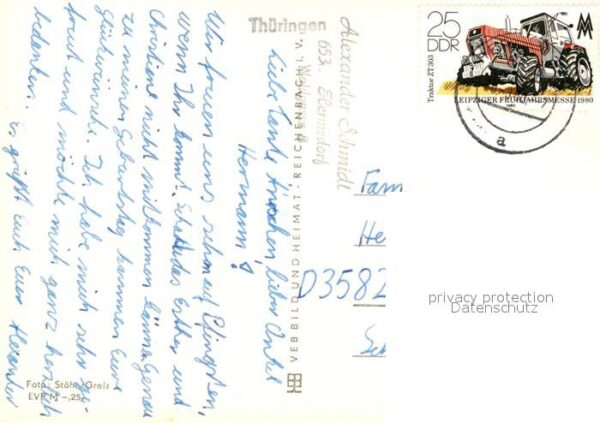 Thüringen
Alexander Schmidt
653 Hermsdorf
Liebe Tante Ännchen, lieber Onkel
Hermann!
Wir freuen uns schon auf Pfingsten,
wenn Ihr kommt. Schade, das Esther und
Christiane nicht mitkommen können. Genau
zu meinem Geburtstag kammen Eure
Glückwünsche. Ich habe mich sehr ge-
freut und möchte mich ganz herzlich
bedanken. Es grüßt Euch Euer Alexander
Foto: Stöhr, Greiz
EVP M -,25
VEB BILD UND HEIMAT · REICHENBACH i. V.
25
DDR
Traktor ZT 303
LEIPZIGER FRÜHJAHRSMESSE 1980
a
Fam
He
D3582
privacy protection
Datenschutz